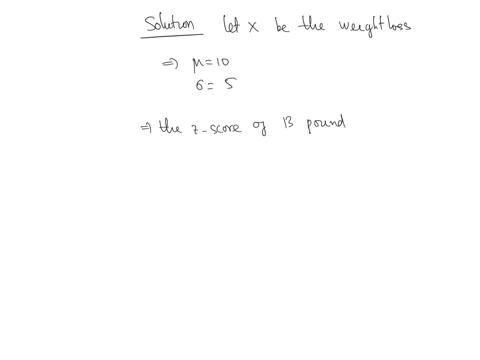 Solution let X be the weight loss
⇒ μ=10
σ= 5
⇒ the z-score of 13 pound